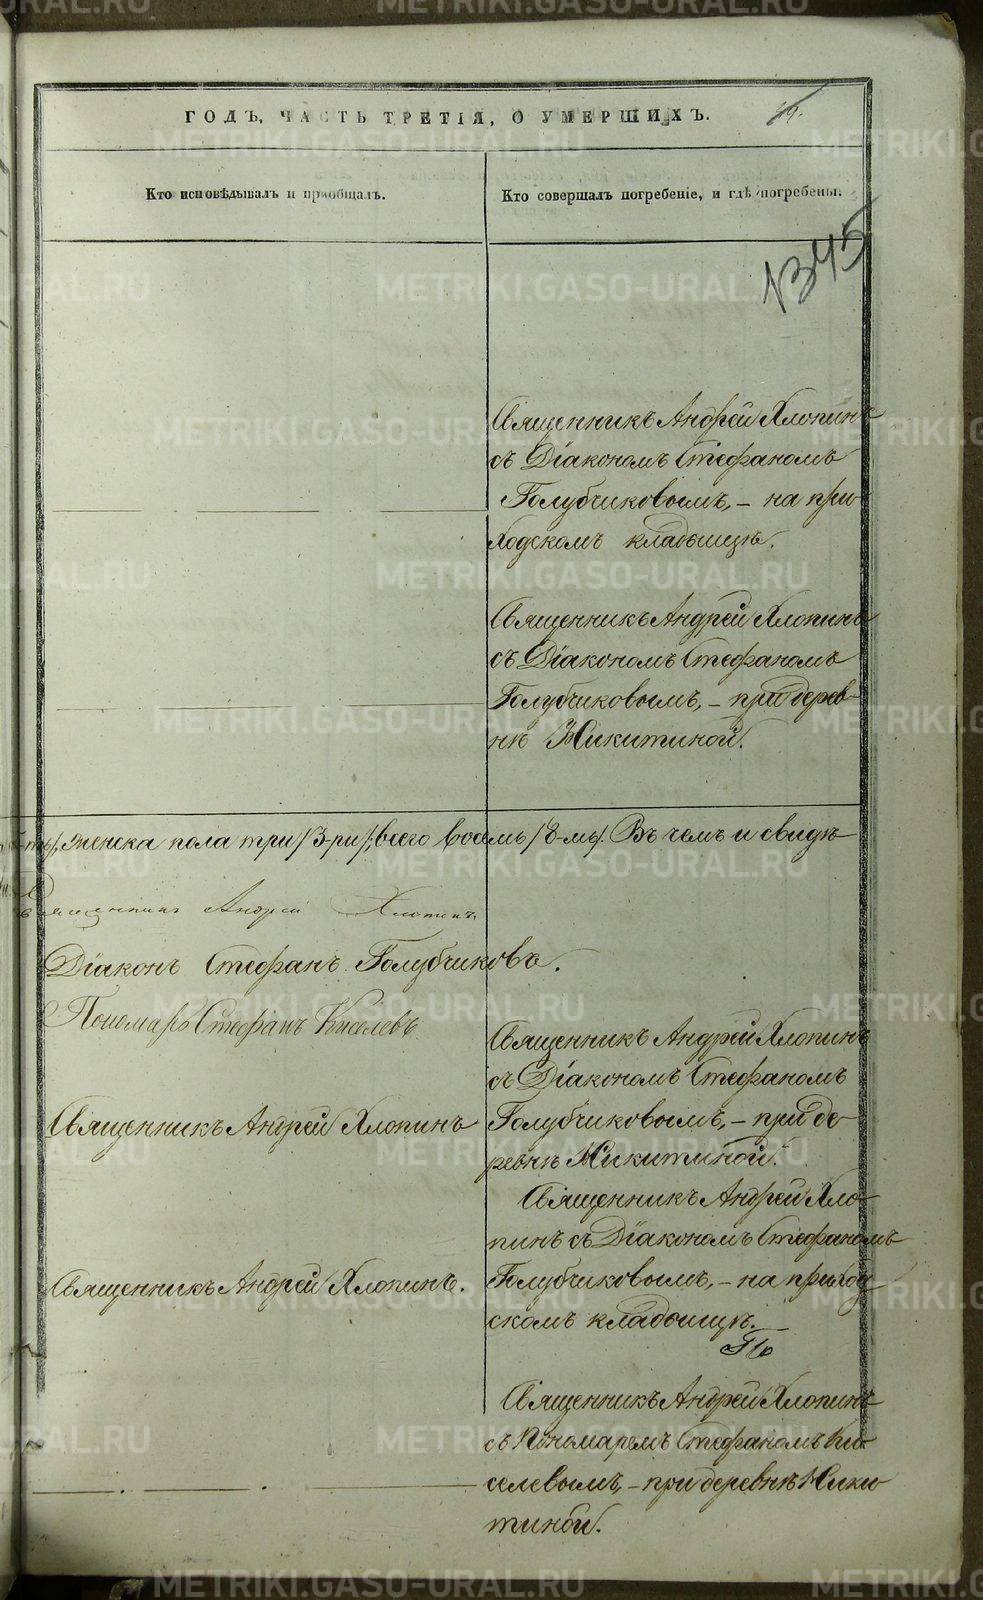 ГОДЪ, ЧАСТЬ ТРЕТІЯ, О УМЕРШИХЪ.
Кто исповѣдывалъ и пріобщалъ.
Кто совершалъ погребеніе, и гдѣ погребены.
1345
Священникъ Андрей Хлопинъ
съ Діакономъ Стефаномъ
Голубчиковымъ, – на при-
ходскомъ кладбищѣ.
Священникъ Андрей Хлопинъ
съ Діакономъ Стефаномъ
Голубчиковымъ, – при дерев-
нѣ Никитиной.
женска пола три /3-ри/, всего восемь /8-мь/. Въ чемъ и свидѣ-
Священникъ Андрей Хлопинъ
Діаконъ Стефанъ Голубчиковъ.
Пономарь Стефанъ Киселевъ
Священникъ Андрей Хлопинъ
съ Діакономъ Стефаномъ
Голубчиковымъ, – при де-
ревнѣ Никитиной.
Священникъ Андрей Хлопинъ
Священникъ Андрей Хло-
пинъ съ Діакономъ Стефаномъ
Голубчиковымъ, – на приход-
скомъ кладбищѣ.
Священникъ Андрей Хлопинъ.
Священникъ Андрей Хлопинъ
съ Пономаремъ Стефаномъ Ки-
селевымъ, – при деревнѣ Ники-
тиной.
METRIKI.GASO-URAL.RU